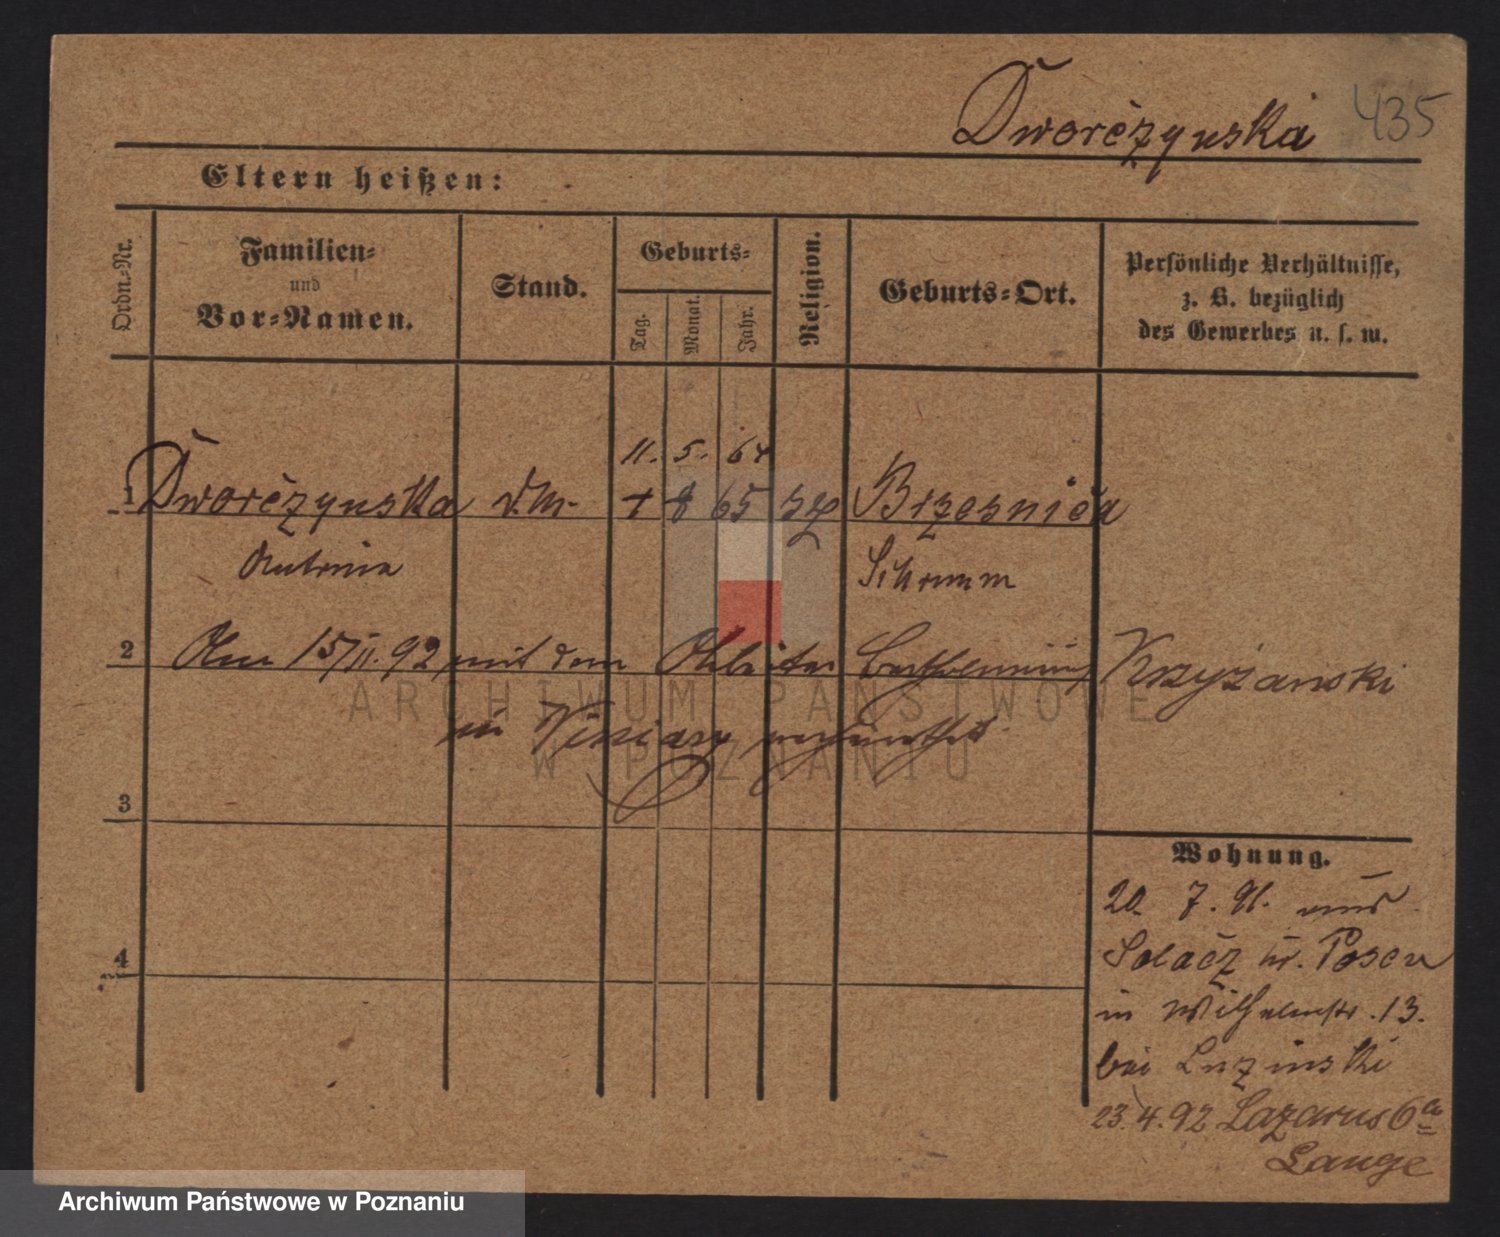 Dworčzynska 435
Eltern heißen:
Ordn.-Nr.
Familien- und Vor-Namen.
Stand.
Geburts-
Tag.
Monat.
Jahr.
Religion.
Geburts-Ort.
Persönliche Verhältnisse,
z. B. bezüglich
des Gewerbes u. s. w.
11. 5. 64
1 Dworčzynska d.M. + 8 65 Brzesniča
Antonia Schrimm
2 Am 15/II. 92 mit dem Arbeiter Krzyżanski
in Winiary verheirathet
3
4
Wohnung.
20. 7. 91. aus
Solačz Kr. Posen
in Wilhelmstr. 13.
bei Luzinski
23.4.92 Lazarus 6a
Lange
ARCHIWUM PAŃSTWOWE
W POZNANIU
Archiwum Państwowe w Poznaniu